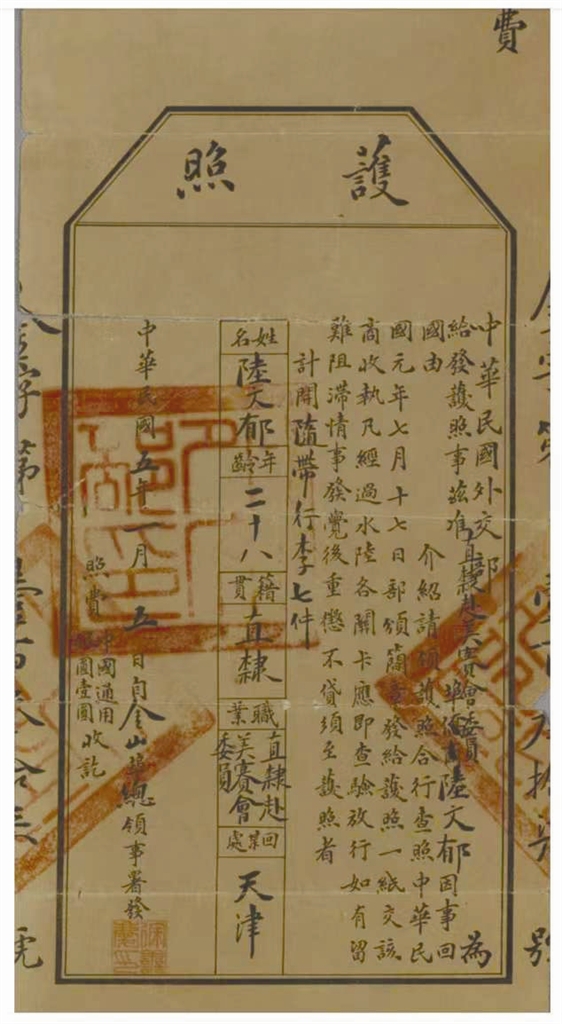 費
護照
中華民國外交部 為
給發護照事茲准直隸赴美賽會委員埠僑商陸文郁因事回
國由 介紹請領護照合行查照中華民
國元年七月十七日部頒簡章發給護照一紙交該
商收執凡經過水陸各關卡應即查驗放行如有留
難阻滯情事發覺後重懲不貸須至護照者
計開隨帶行李七件
姓名
陸文郁
年齡
二十八
籍貫
直隸
職業
直隸赴
美賽會
委員
回某處
天津
中華民國五年一月五日自金山埠總領事署發
照費
中國通用
銀圓壹圓
收訖
字第
號